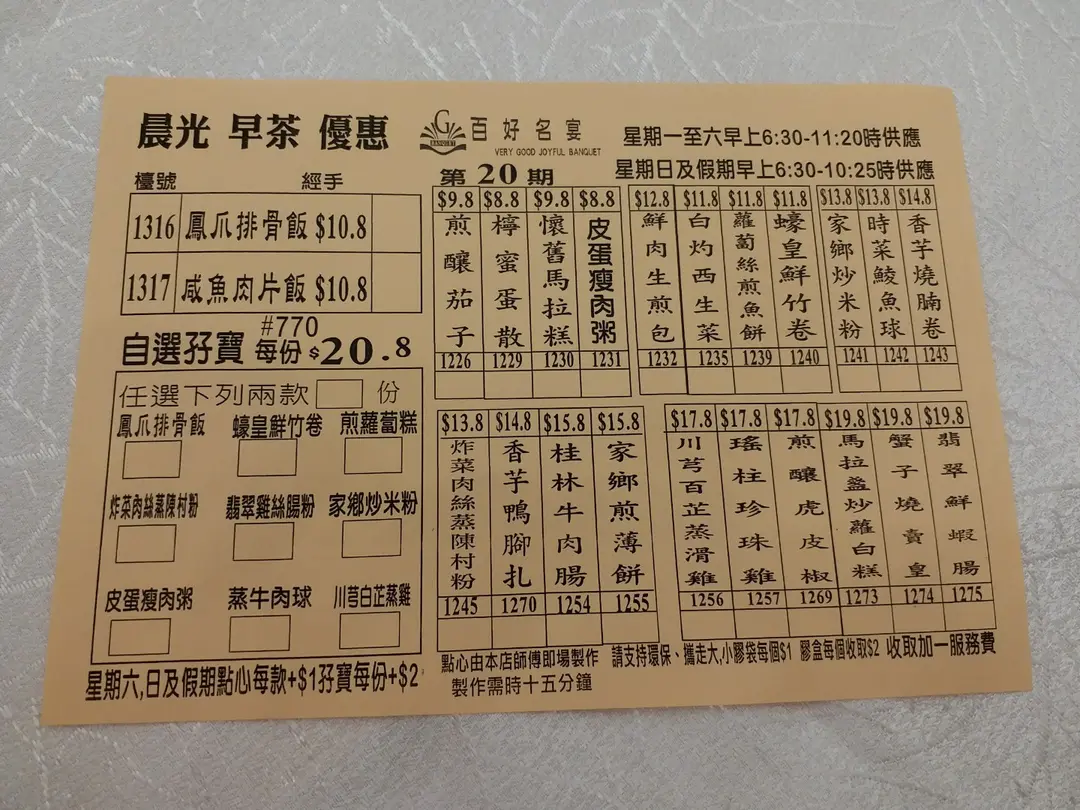 晨光 早茶 優惠
G
BANQUET
百好名宴
VERY GOOD JOYFUL BANQUET
星期一至六早上6:30-11:20時供應
星期日及假期早上6:30-10:25時供應
第 20 期
檯號 經手
1316 鳳爪排骨飯 $10.8
1317 咸魚肉片飯 $10.8
自選孖寶 #770 每份 $20.8
任選下列兩款 份
鳳爪排骨飯 蠔皇鮮竹卷 煎蘿蔔糕
炸菜肉絲蒸陳村粉 翡翠雞絲腸粉 家鄉炒米粉
皮蛋瘦肉粥 蒸牛肉球 川芎白芷蒸雞
星期六,日及假期點心每款+$1孖寶每份+$2
$9.8 煎釀茄子 1226
$8.8 檸蜜蛋散 1229
$9.8 懷舊馬拉糕 1230
$8.8 皮蛋瘦肉粥 1231
$12.8 鮮肉生煎包 1232
$11.8 白灼西生菜 1235
$11.8 蘿蔔絲煎魚餅 1239
$11.8 蠔皇鮮竹卷 1240
$13.8 家鄉炒米粉 1241
$13.8 時菜鯪魚球 1242
$14.8 香芋燒腩卷 1243
$13.8 炸菜肉絲蒸陳村粉 1245
$14.8 香芋鴨腳扎 1270
$15.8 桂林牛肉腸 1254
$15.8 家鄉煎薄餅 1255
$17.8 川芎百芷蒸滑雞 1256
$17.8 瑤柱珍珠雞 1257
$17.8 煎釀虎皮椒 1269
$19.8 馬拉盞炒蘿白糕 1273
$19.8 蟹子燒賣皇 1274
$19.8 翡翠鮮蝦腸 1275
點心由本店師傅即場製作
製作需時十五分鐘
請支持環保、攜走大,小膠袋每個$1 膠盒每個收取$2 收取加一服務費